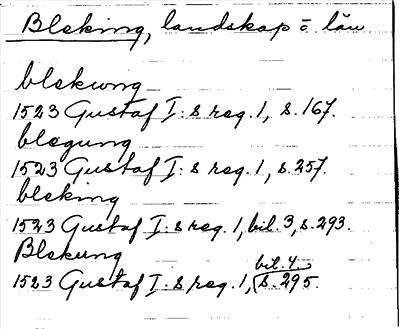 Bleking, landskap o. län
blekung
1523 Gustaf I:s reg. 1, s. 167.
blegung
1523 Gustaf I:s reg. 1, s. 257.
bleking
1523 Gustaf I:s reg. 1, bil. 3, s. 293.
Blekung
1523 Gustaf I:s reg. 1, bil. 4. s. 295.